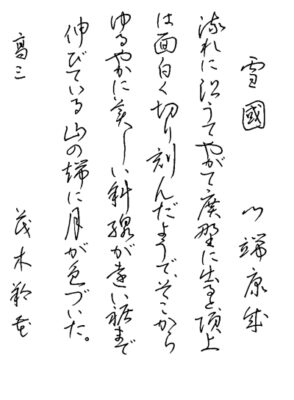 雪國 川端康成
流れに沿うてやがて廣野に出る頂上
は面白く切り刻んだようで、そこから
ゆるやかに美しい斜線が遠い裾まで
伸びている山の端に月が色づいた。
高三 茂木